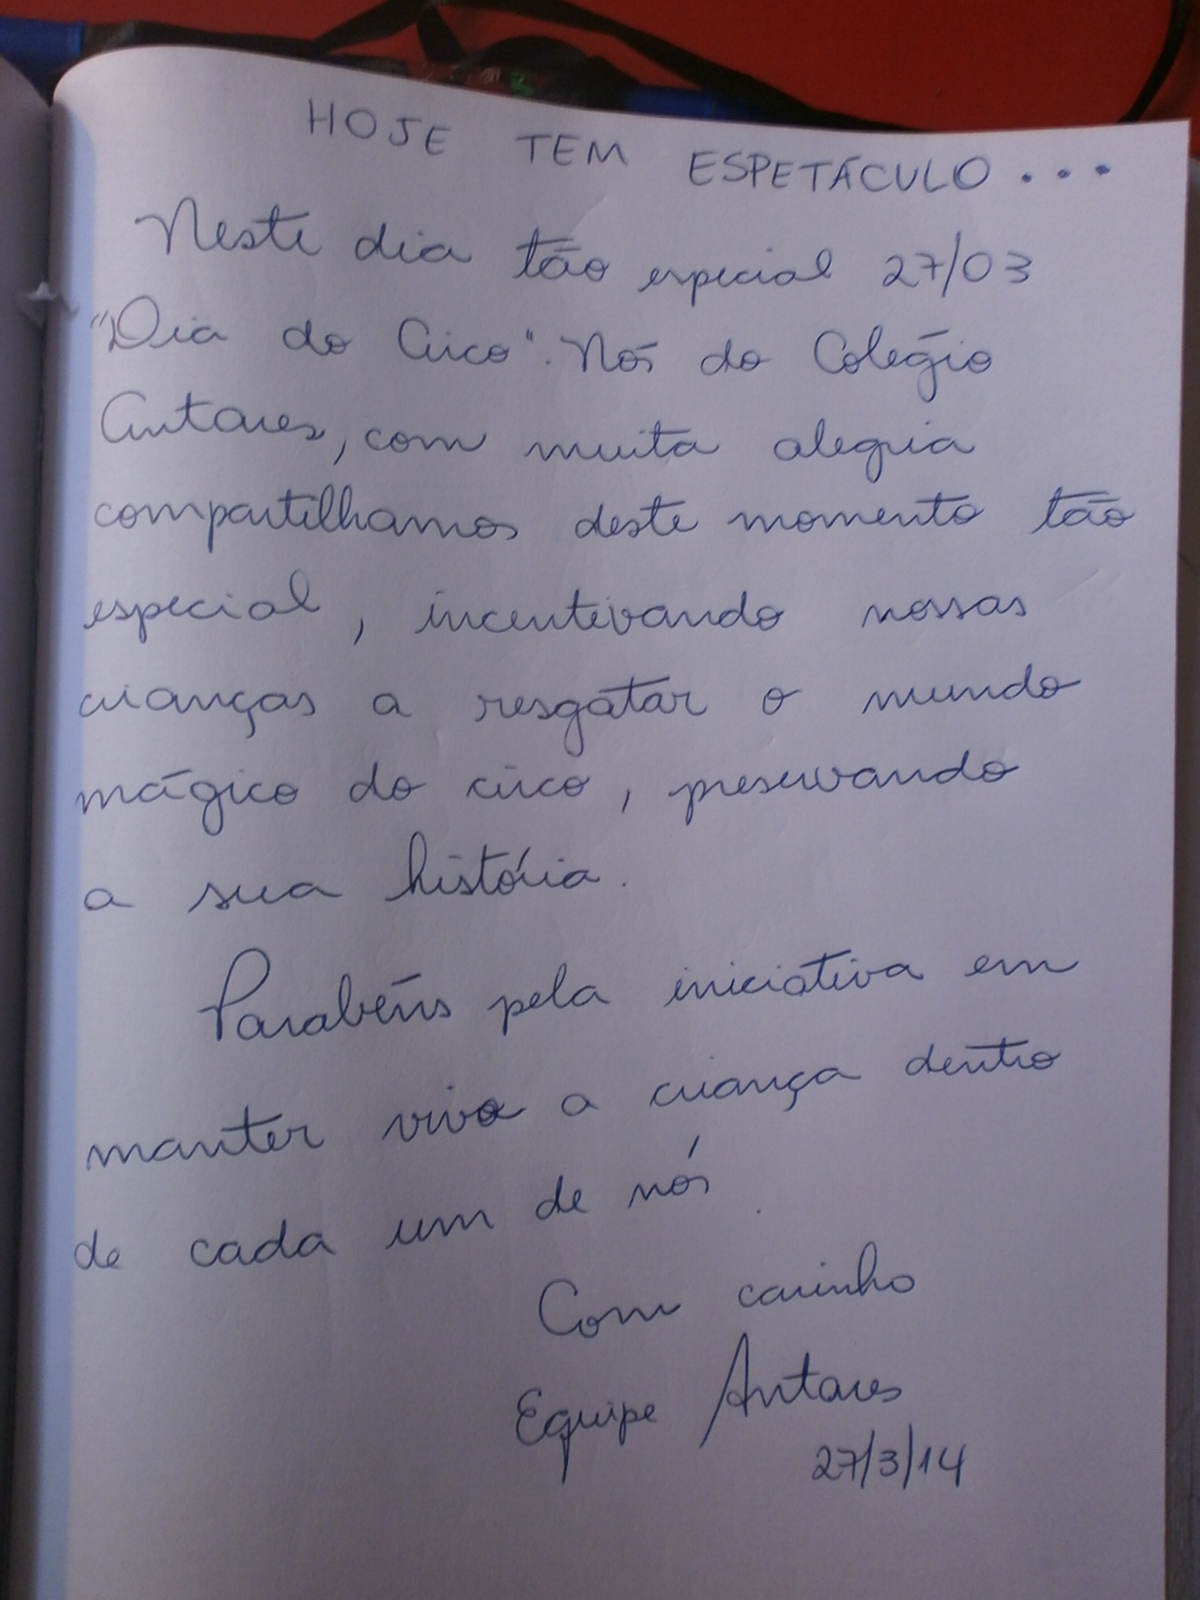 HOJE TEM ESPETÁCULO...
Neste dia tão especial 27/03
"Dia do Circo". Nós do Colégio
Antares, com muita alegria
compartilhamos deste momento tão
especial, incentivando nossas
crianças a resgatar o mundo
mágico do circo, preservando
a sua história.
Parabéns pela iniciativa em
manter viva a criança dentro
de cada um de nós.
Com carinho
Equipe Antares
27/3/14